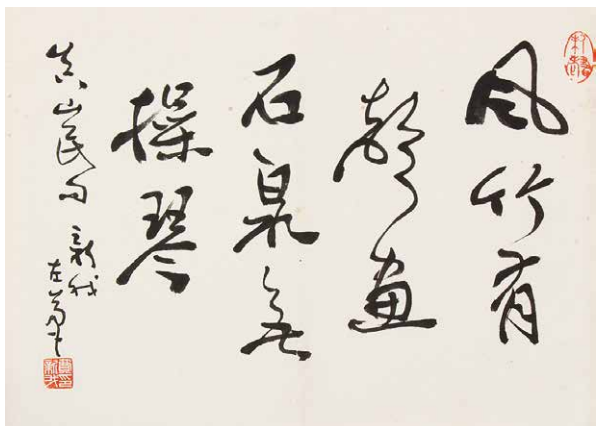 風竹有
聲畫
石泉無
操琴
真山民句
新我左筆